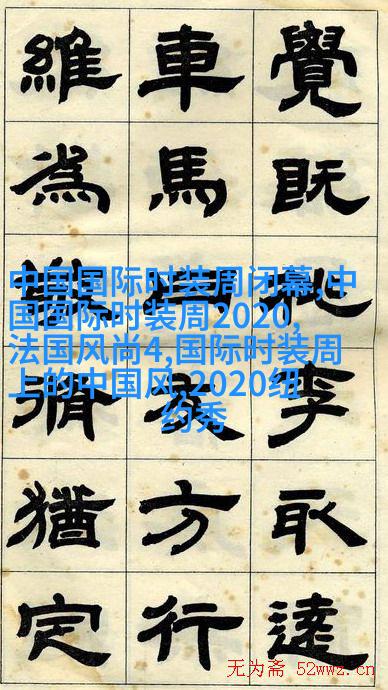 覺既李取達
車馬方行
維為猶定
中国国际时装周闭幕,中
国国际时装周2020,
法国风尚4,国际时装周
上的中国风,2020纽
约秀
无为斋 52wwz.cn